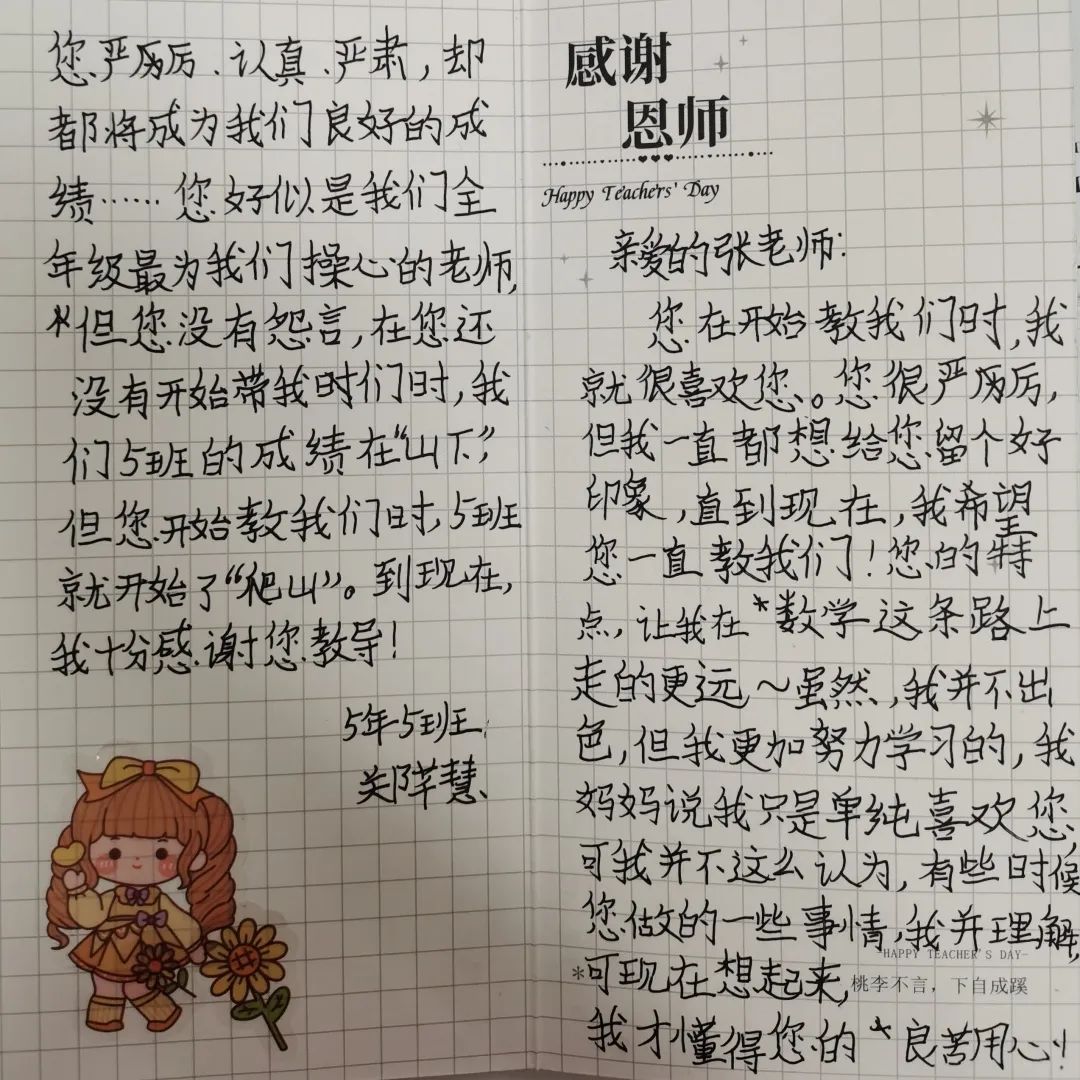 感谢
恩师
Happy Teachers' Day
亲爱的张老师:
您在开始教我们时,我
就很喜欢您。您很严厉厉,
但我一直都想给您留个好
印象,直到现在,我希望
您一直教我们!您的特
点,让我在*数学这条路上
走的更远～虽然,我并不出
色,但我更加努力学习的,我
妈妈说我只是单纯喜欢您,
可我并不这么认为,有些时候
您做的一些事情,我并理解,
-HAPPY TEACHER'S DAY-
*可现在想起来,
桃李不言，下自成蹊
我才懂得您的*良苦用心!
您严厉厉、认真、严肃,却
都将成为我们良好的成
绩……您好似是我们全
年级最为我们操心的老师,
*但您没有怨言,在您还
没有开始带我时们时,我
们5班的成绩在“山下”,
但您开始教我们时,5班
就开始了“爬山”。到现在,
我十分感谢您教导!
5年5班
慧